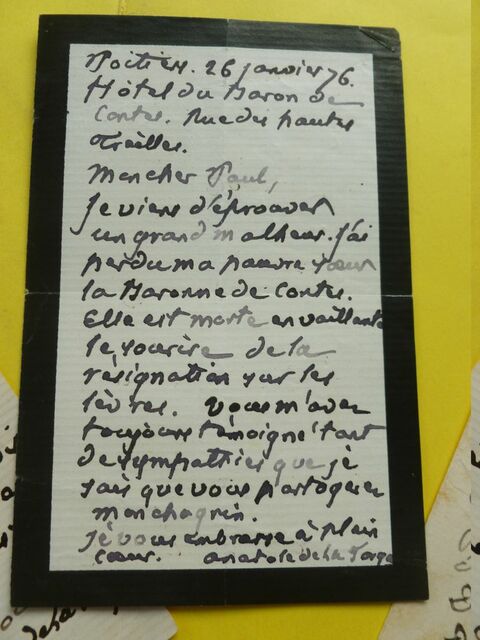 Poitiers. 26 janvier 76.
Hôtel du Baron de
Contes. Rue des hautes
Treilles.
Mon cher Paul,
Je viens d'éprouver
un grand malheur. J'ai
perdu ma pauvre sœur
la Baronne de Contes.
Elle est morte en vaillante
le sourire de la
résignation sur les
lèvres. Vous m'avez
toujours témoigné tant
de sympathies que je
sais que vous partagerez
mon chagrin.
Je vous embrasse à plein
cœur. Anatole de la Forge